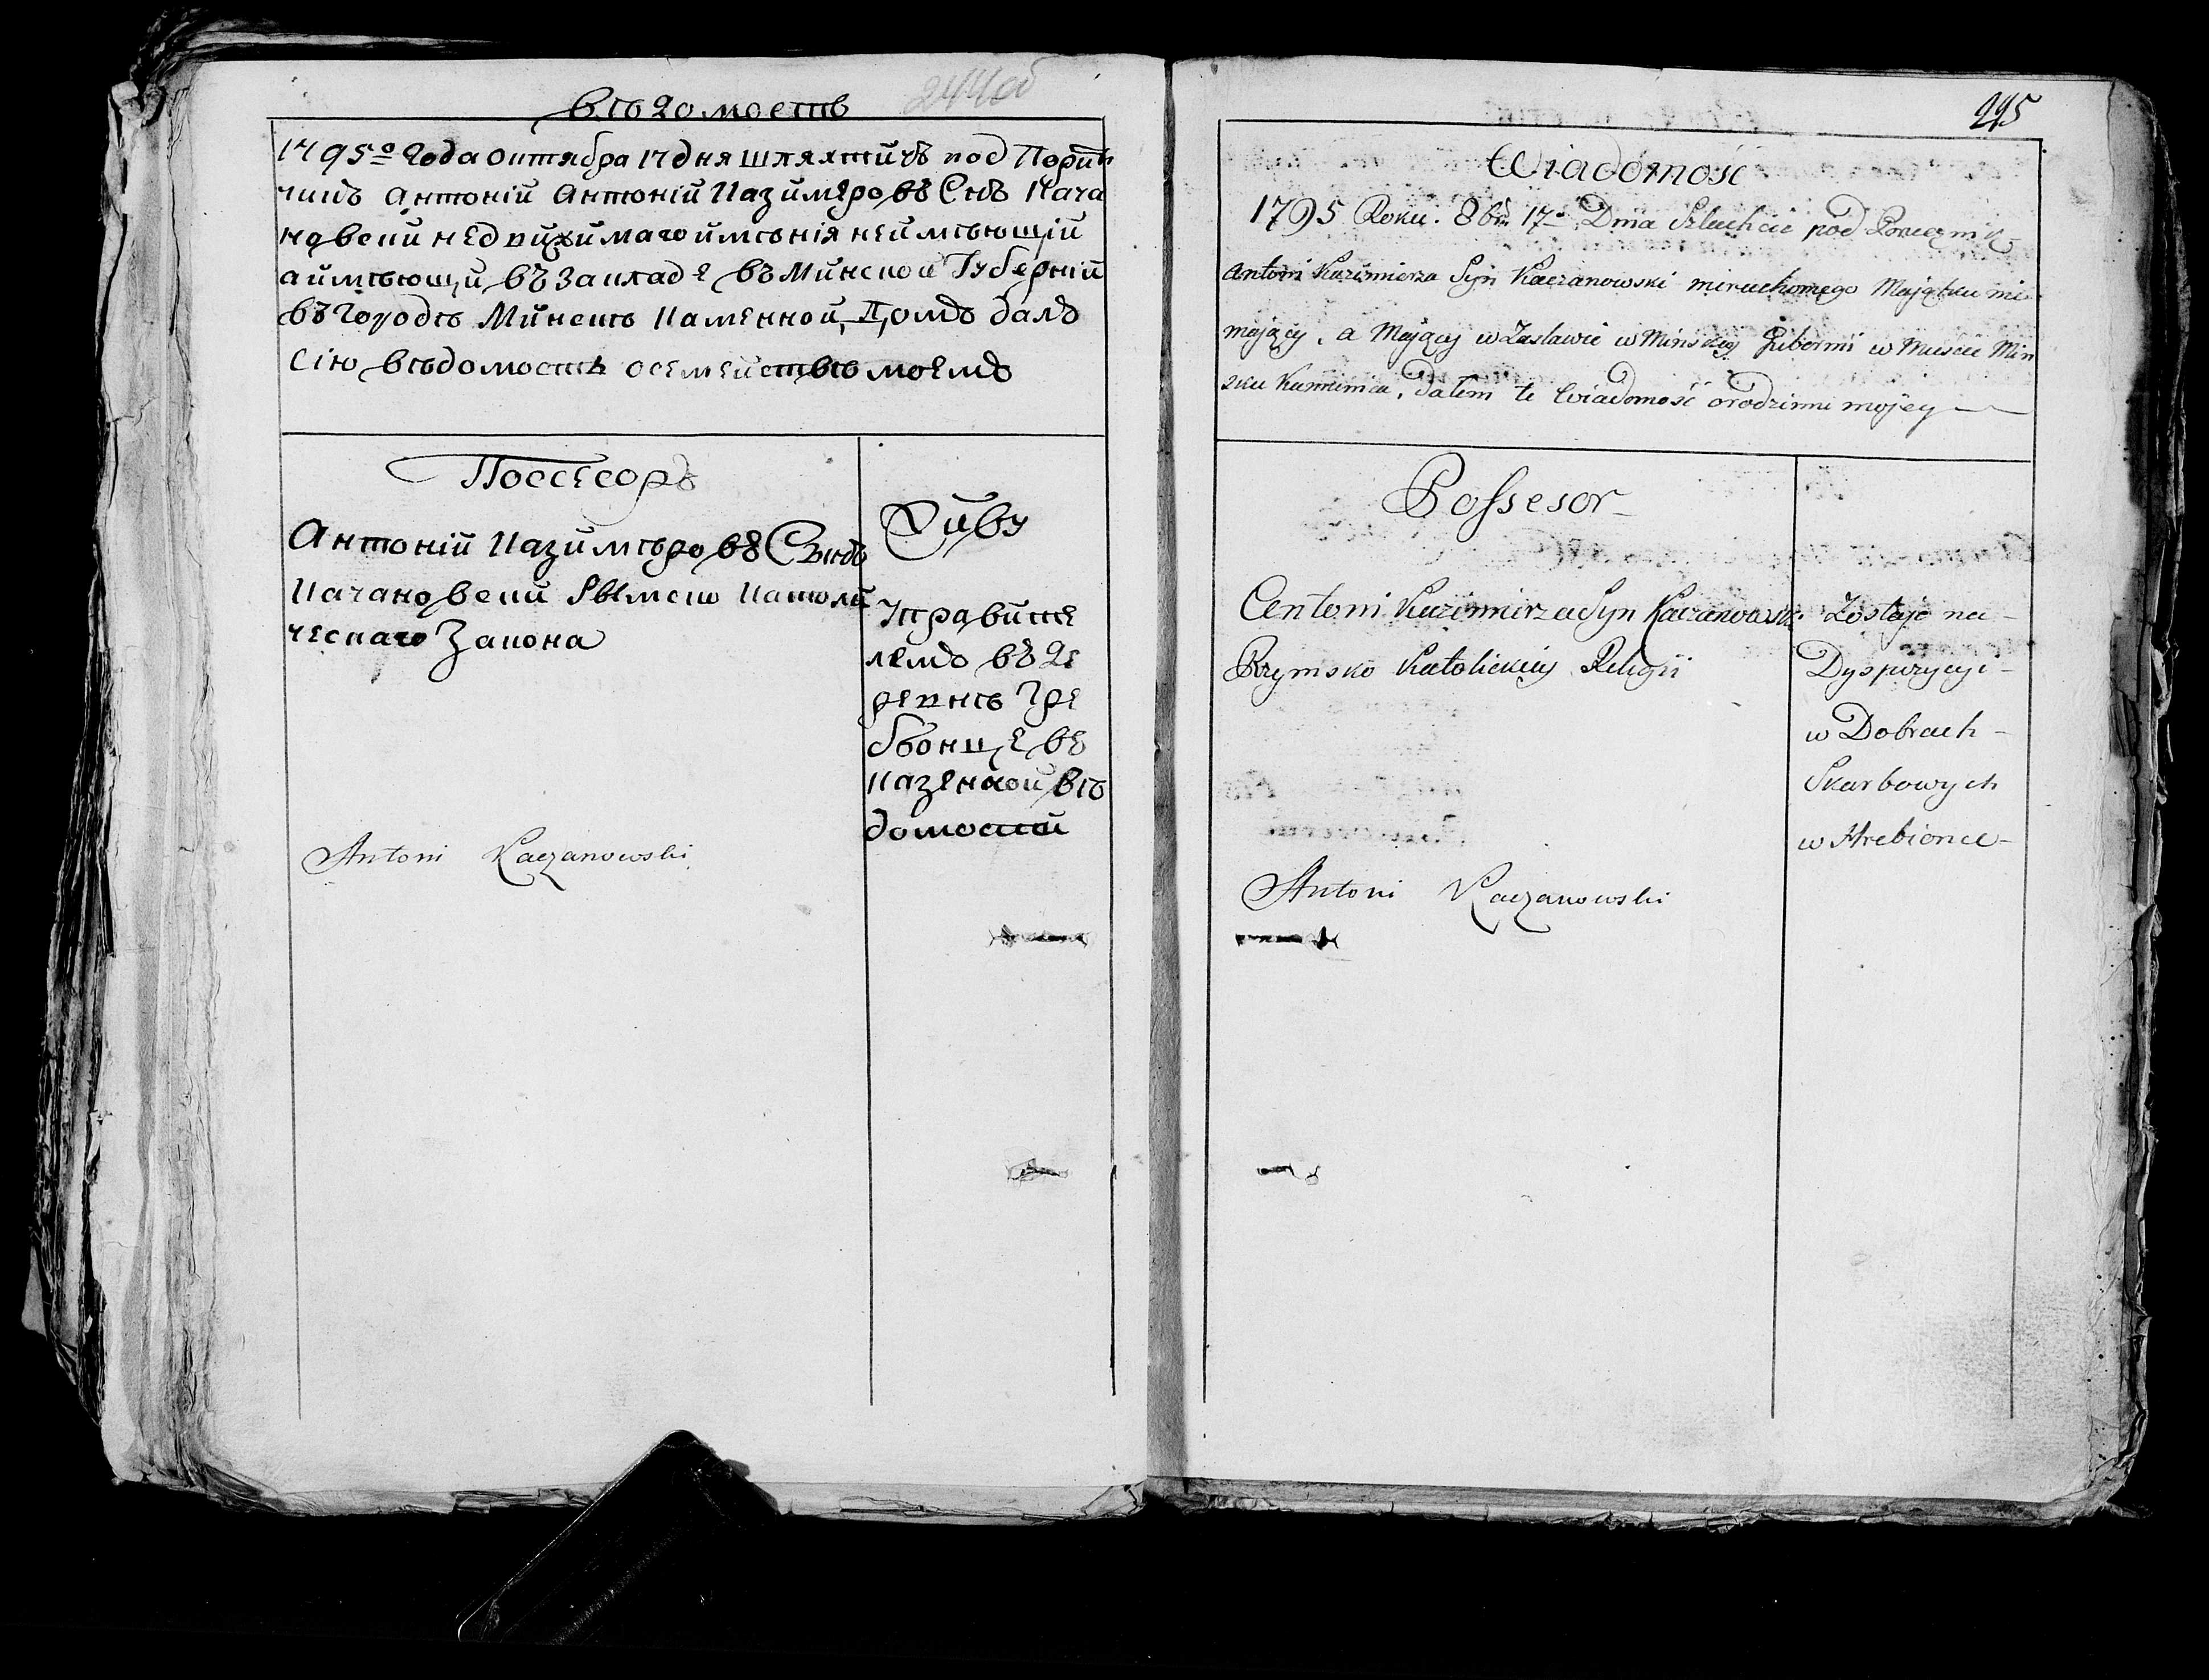 вѣдомость
244об
1795го Года Октября 17 дня шляхтичъ под Порут
чикъ Антоній Антоній Казимеровъ Снъ Кача
новски недвижимаго имѣнія неимѣющій
а имѣющи въ Закладе въ Минской Губерніи
въ городѣ Минскѣ Каменной Домъ далъ
Сію вѣдомость осемействѣ моемъ
Поссесоръ
Антоній Казимѣровъ Сынъ
Качановски Рымско Католи
ческаго Закона
Antoni Kaczanowski
Живу
Управите
лемъ въ Де
ревнѣ Гре
бьонце въ
Казенной вѣ
домости
225
Wiadomość
1795 Roku. 8bra 17o Dnia Szlachcic pod Porucznik
Antoni Kazimierza Syn Kaczanowski nieruchomego Majątku nie
mający, a Mający w Zastawie w Minskiey Gubernii w Miescie Min
sku Kamienica, Dałem te Wiadomość o rodzinni mojey
Possesor
Antoni Kazimierza Syn Kaczanowski
Rzymsko Katolickiey Religii
Antoni Kaczanowski
Zostaję na
Dyspozycyi
w Dobrach
Skarbowych
w Hrebionce